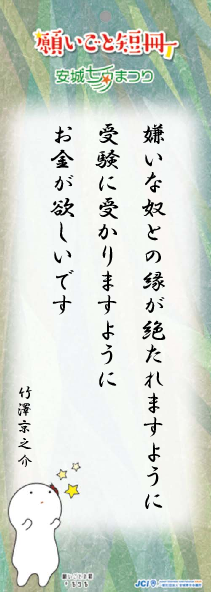 願いごと短冊
安城七夕まつり
嫌いな奴との縁が絶たれますように
受験に受かりますように
お金が欲しいです
竹澤京之介
JCI